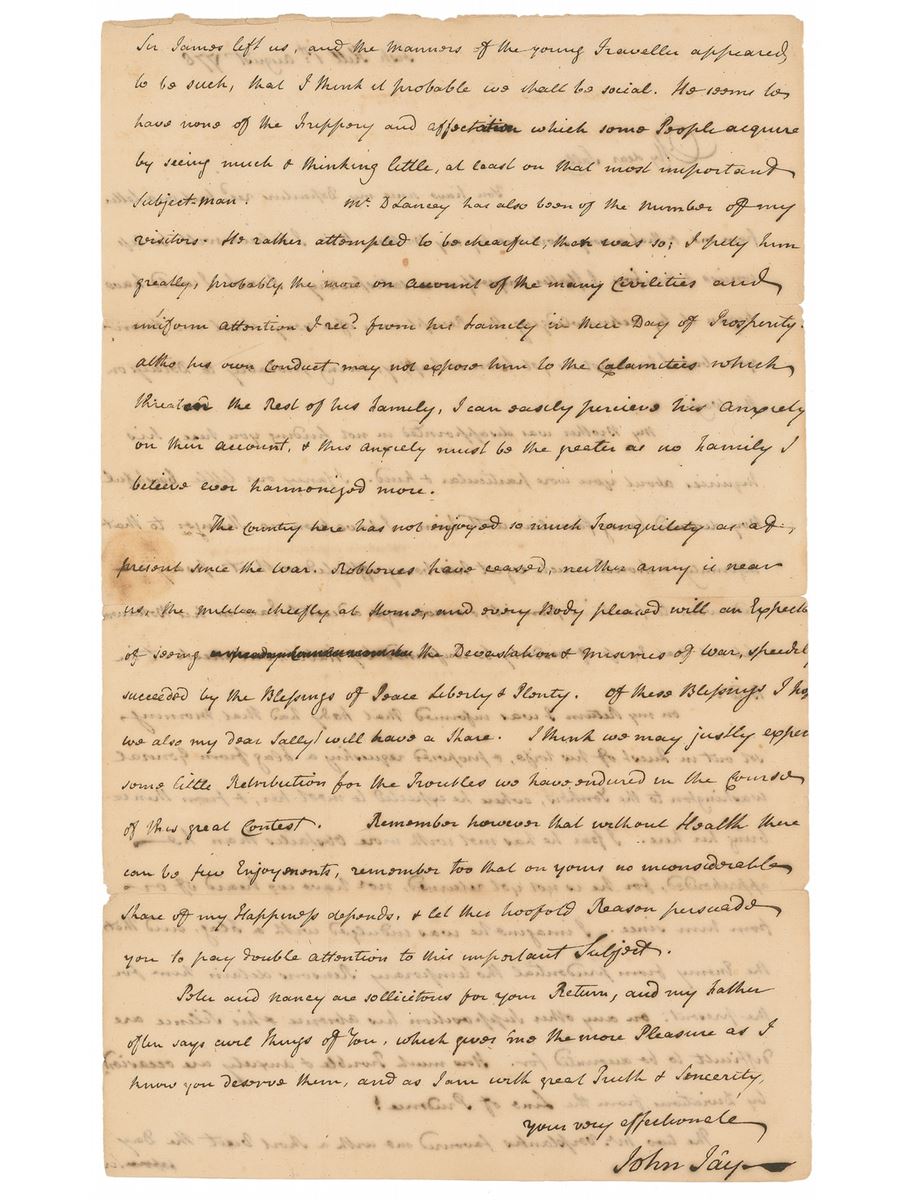 Sir James left us, and the manners of the young Traveller appeared
to be such, that I think it probable we shall be social. He seems to
have none of the Frippery and affectation which some People acquire
by seeing much & thinking little, at least on that most important
Subject man. Mr. DLancey has also been of the number of my
visitors. He rather attempted to be chearful, than was so; I pity him
greatly, probably the more on account of the many Civilities and
uniform attention I recd. from his Family in their Day of Prosperity.
altho his own Conduct may not expose him to the Calamities which
threaten the Rest of his Family, I can easily percieve his anxiety
on their account, & this anxiety must be the greater as no Family I
believe ever harmonized more.
The Country here has not enjoyed so much Tranquility as at
present since the war. Robberies have ceased, neither army is near
us, the militia chiefly at Home, and every Body pleased with an Expect
of seeing the Devastation & miseries of war, speedily
succeeded by the Blessings of Peace Liberty & Plenty. Of these Blessings I hop
we also my dear Sally! will have a Share. I think we may justly expec
some little Retribution for the Troubles we have endured in the Course
of this great Contest. Remember however that without Health there
can be few Enjoyments, remember too that on yours no inconsiderable
Share of my Happiness depends. & let this twofold Reason persuade
you to pay double attention to this important Subject.
Peter and Nancy are sollicitous for your Return, and my Father
often says civil Things of You, which gives me the more Pleasure as I
know you deserve them, and as I am with great Truth & Sincerity,
your very affectionate
John Jay